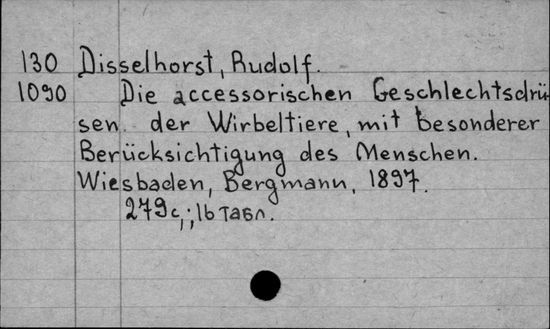 130 Disselhorst, Rudolf.
1090 Die accessorischen Geschlechtsdrü-
sen der Wirbeltiere, mit besonderer
Berücksichtigung des Menschen.
Wiesbaden, Bergmann, 1897.
279с.; 16 табл.